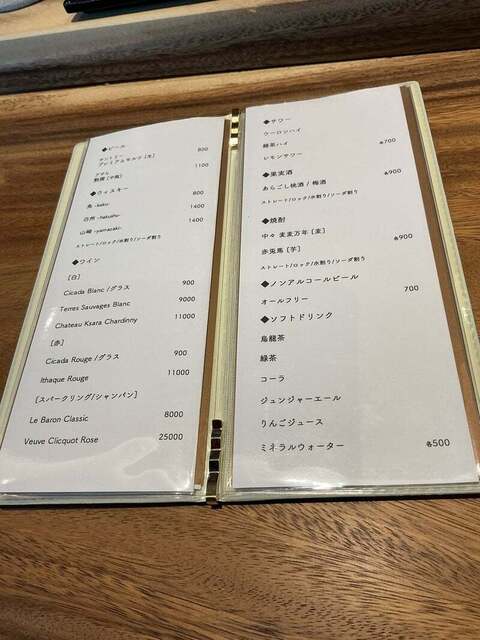 ◆ビール
サントリー
プレミアムモルツ [生] 800
1100
◆ウィスキー
角 -kaku- 800
白州 -hakushu- 1400
山崎 -yamazaki- 1400
ストレート/ロック/水割り/ソーダ割り
◆ワイン
[白]
Cicada Blanc /グラス 900
Terres Sauvages Blanc 9000
Chateau Ksara Chardinny 11000
[赤]
Cicada Rouge /グラス 900
Ithaque Rouge 11000
[スパークリング/シャンパン]
Le Baron Classic 8000
Veuve Clicquot Rose 25000
◆サワー
ウーロンハイ
緑茶ハイ 各700
レモンサワー
◆果実酒
あらごし桃酒 / 梅酒 各900
ストレート/ロック/水割り/ソーダ割り
◆焼酎
中々 麦麦万年 [麦]
赤兎馬 [芋] 各900
ストレート/ロック/水割り/ソーダ割り
◆ノンアルコールビール
オールフリー 700
◆ソフトドリンク
烏龍茶
緑茶
コーラ
ジュンジャーエール
りんごジュース
ミネラルウォーター 各500